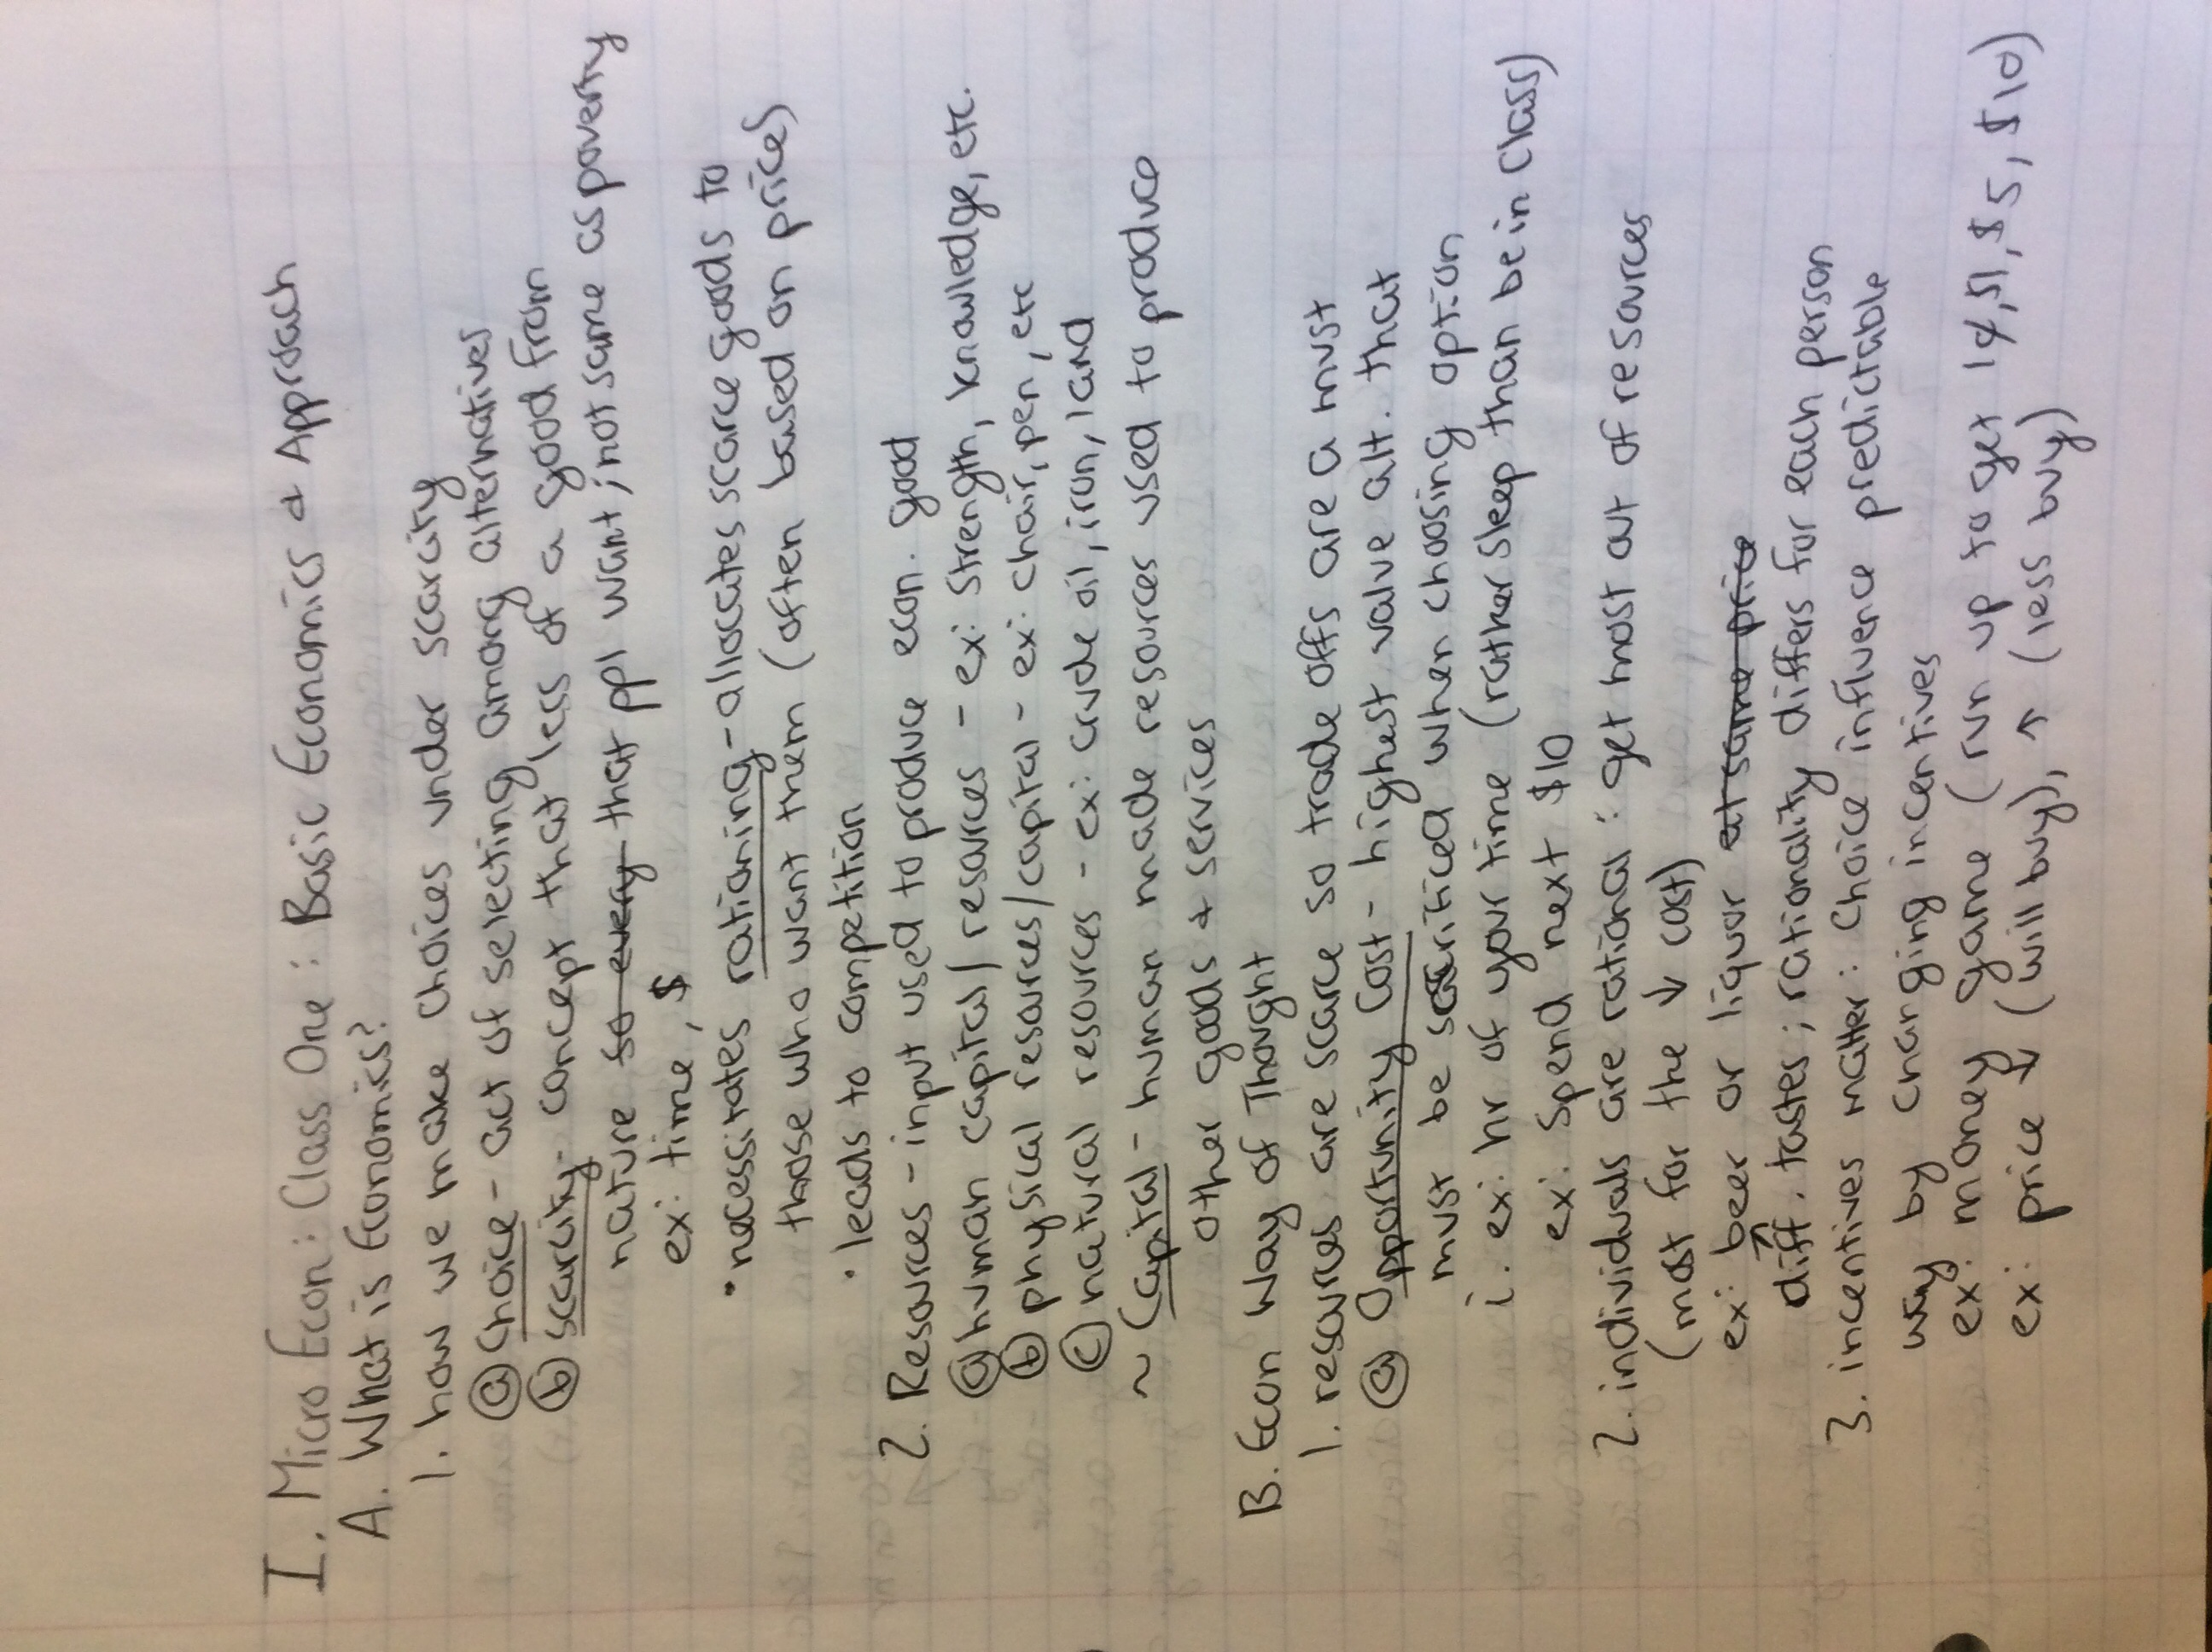 I. Micro Econ: Class One: Basic Economics & Approach
A. What is Economics?
1. how we make choices under scarcity
ⓐ Choice - act of selecting among alternatives
ⓑ scarcity - concept that less of a good from
nature so every that ppl want; not same as poverty
ex: time, $
• necessitates rationing - allocates scarce goods to
those who want them (often based on prices)
• leads to competition
2. Resources - input used to produce econ. good
ⓐ human capital/resources - ex: strength, knowledge, etc.
ⓑ physical resources/capital - ex: chair, pen, etc
ⓒ natural resources - ex: crude oil, iron, land
~ Capital - human made resources used to produce
other goods & services
B. Econ Way of Thought
1. resources are scarce so trade offs are a must
ⓐ Opportunity Cost - highest value alt. that
must be sacrificed when choosing option
i. ex: hr of your time (rather sleep than be in class)
ex: spend next $10
2. individuals are rational: get most out of resources
(most for the ↓ cost)
ex: beer or liquor at same price
diff. tastes; rationality differs for each person
3. incentives matter: choice influence predictable
way by changing incentives
ex: money game (run up to get 1¢, $1, $5, $10)
ex: price ↓ (will buy), ↑ (less buy)